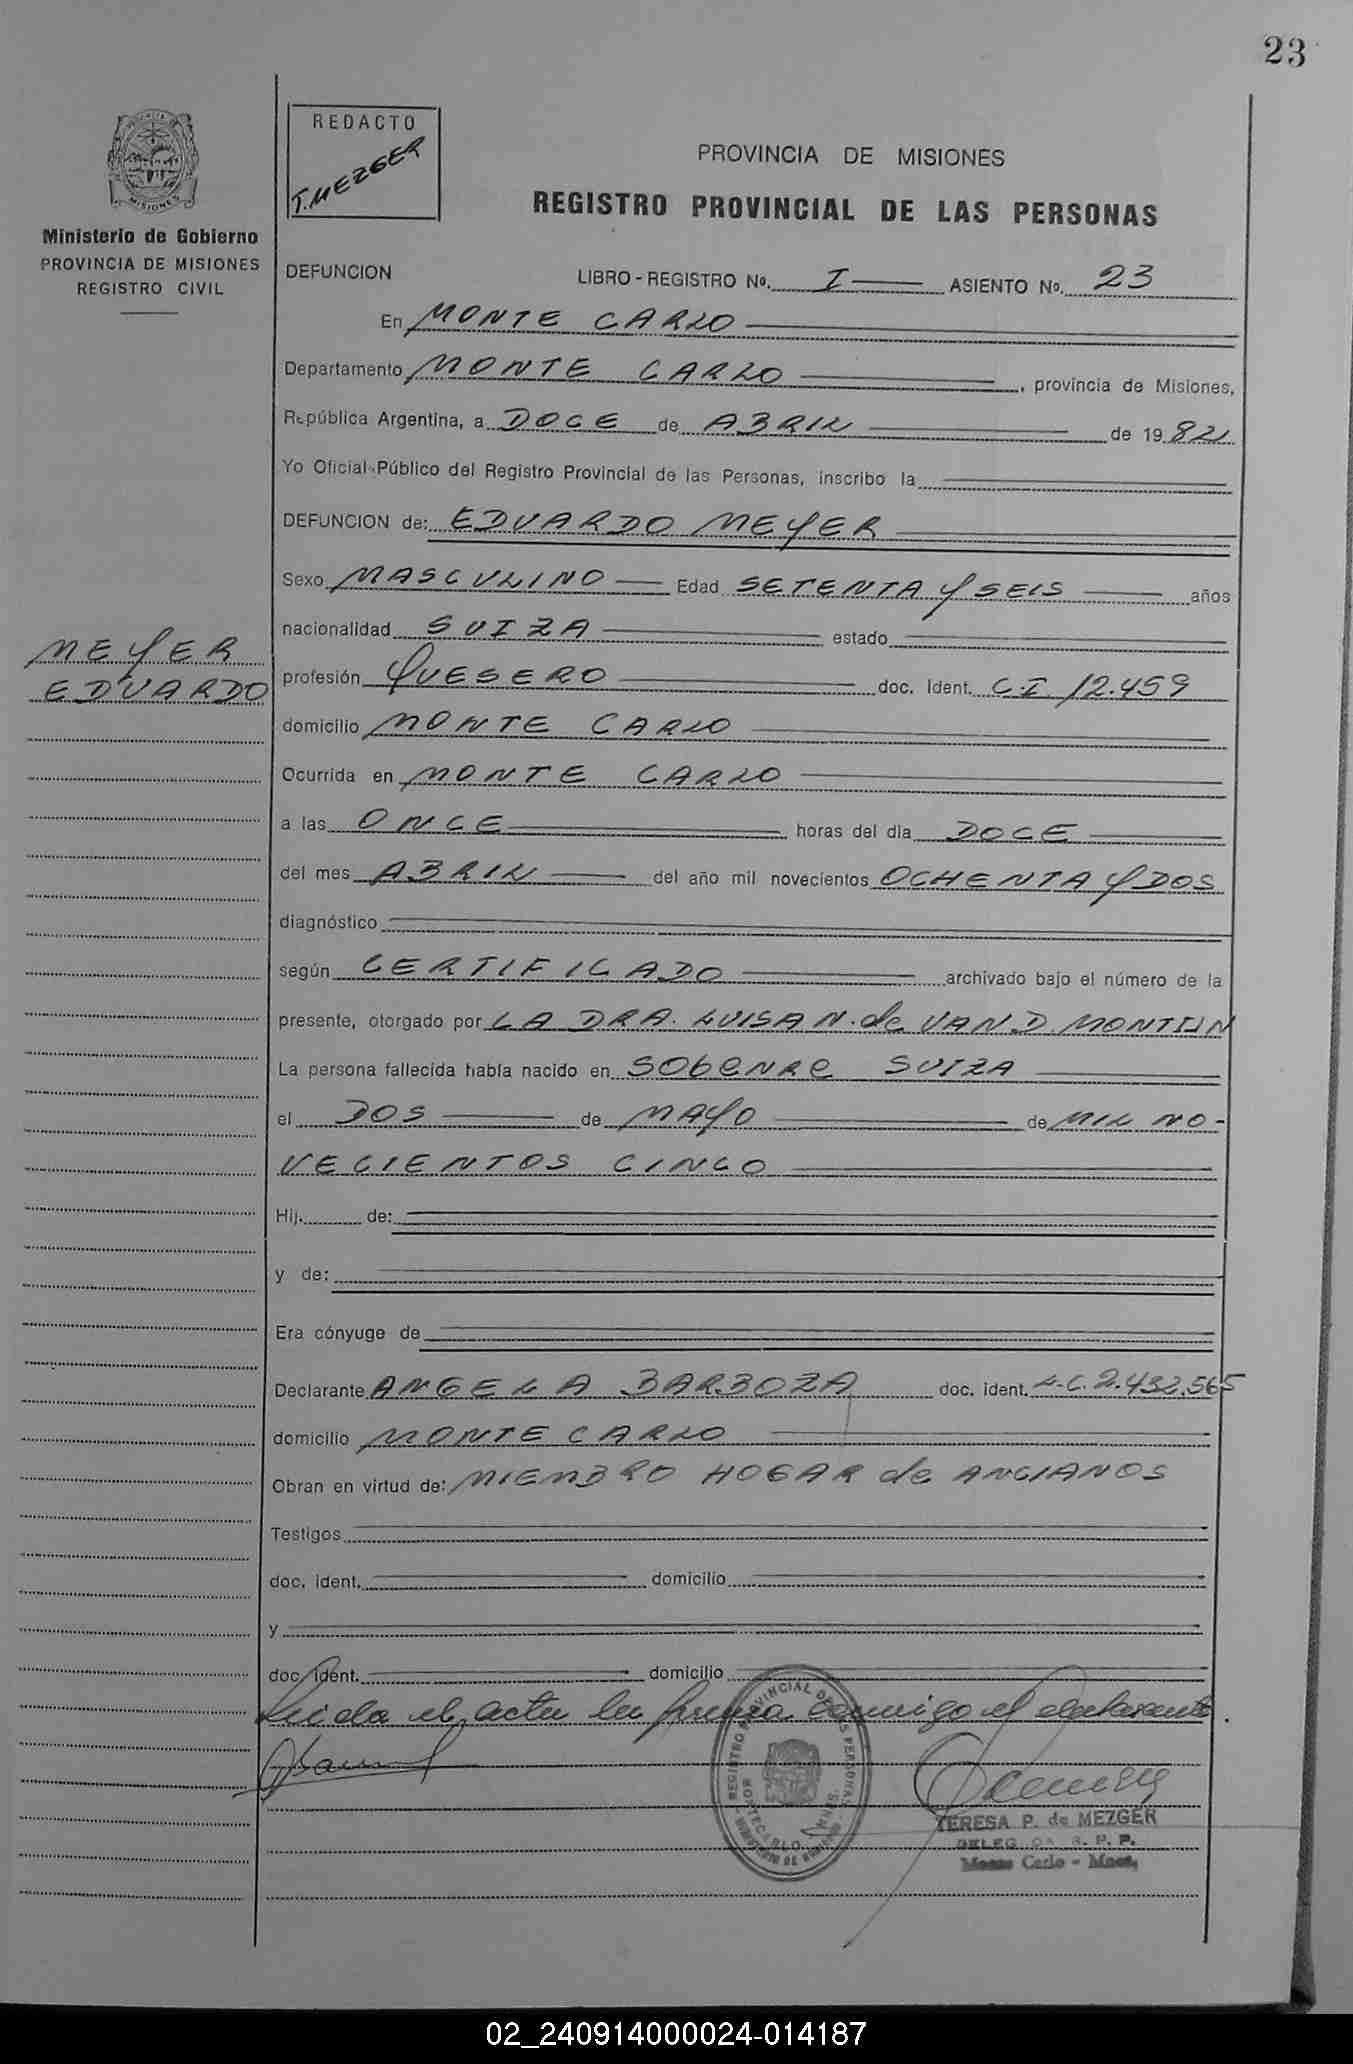 23
REDACTO
T. MEZGER
PROVINCIA DE MISIONES
REGISTRO PROVINCIAL DE LAS PERSONAS
Ministerio de Gobierno
PROVINCIA DE MISIONES
REGISTRO CIVIL
DEFUNCION LIBRO - REGISTRO Nº. I ASIENTO Nº. 23
En MONTE CARLO
Departamento MONTE CARLO, provincia de Misiones,
República Argentina, a DOCE de ABRIL de 1982
Yo Oficial Público del Registro Provincial de las Personas, inscribo la
DEFUNCION de: EDUARDO MEYER
Sexo MASCULINO Edad SETENTA Y SEIS años
nacionalidad SUIZA estado
MEYER
EDUARDO
profesión QUESERO doc. Ident. C.I 12.459
domicilio MONTE CARLO
Ocurrida en MONTE CARLO
a las ONCE horas del día DOCE
del mes ABRIL del año mil novecientos OCHENTA Y DOS
diagnóstico
según CERTIFICADO archivado bajo el número de la
presente, otorgado por LA DRA. LUISA N. de VAN D.
La persona fallecida había nacido en SObENRe SUIZA
el DOS de MAYO de MIL NO-
VECIENTOS CINCO
Hij. de:
y de:
Era cónyuge de
Declarante ANGELA BARBOZA doc. ident. L.C. 2.432.565
domicilio MONTE CARLO
Obran en virtud de: MIEMBRO HOGAR de ANCIANOS
Testigos
doc. ident. domicilio
y
doc. ident. domicilio
Leida el acta la firma conmigo el declarante.
REGISTRO PROVINCIAL DE LAS PERSONAS
TERESA P. de MEZGER
DELEG. R. P. P.
Monte Carlo - Mnes.
02_240914000024-014187